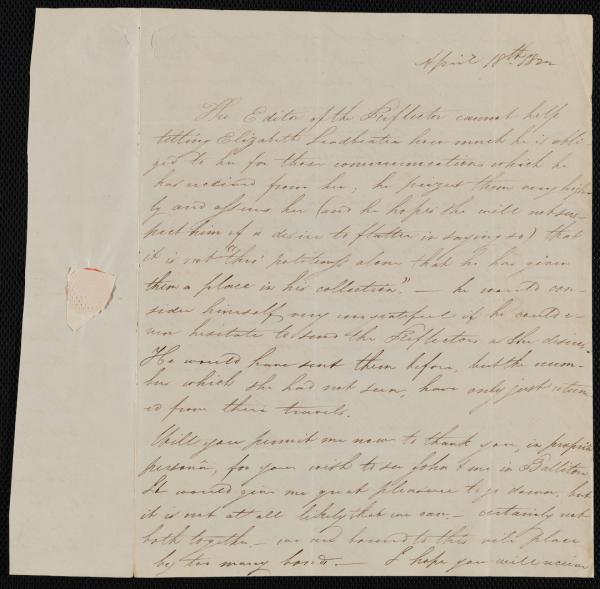 April 18th 1822
The Editor of the Reflector cannot help
telling Elizabeth Leadbeater how much he is obli-
ged to her for those communications which he
has received from her; he prizes them very high-
ly and assures her (and he hopes she will not sus-
pect him of a desire to flatter in saying so) that
it is not "thro' politeness alone that he has given
them a place in his collection." — he would con-
sider himself very ungrateful if he could e-
ven hesitate to send the Reflectors as she desires.
He would have sent them before, but the num-
bers which she had not seen, have only just return-
ed from their travels.
Will you permit me now to thank you, in propria
persona, for your wish to see John & me in Ballitore
It would give me great pleasure to go down, but
it is not at all likely that we can, — certainly not
both together — we are bound to this vile place
by too many bonds. — I hope you will receive